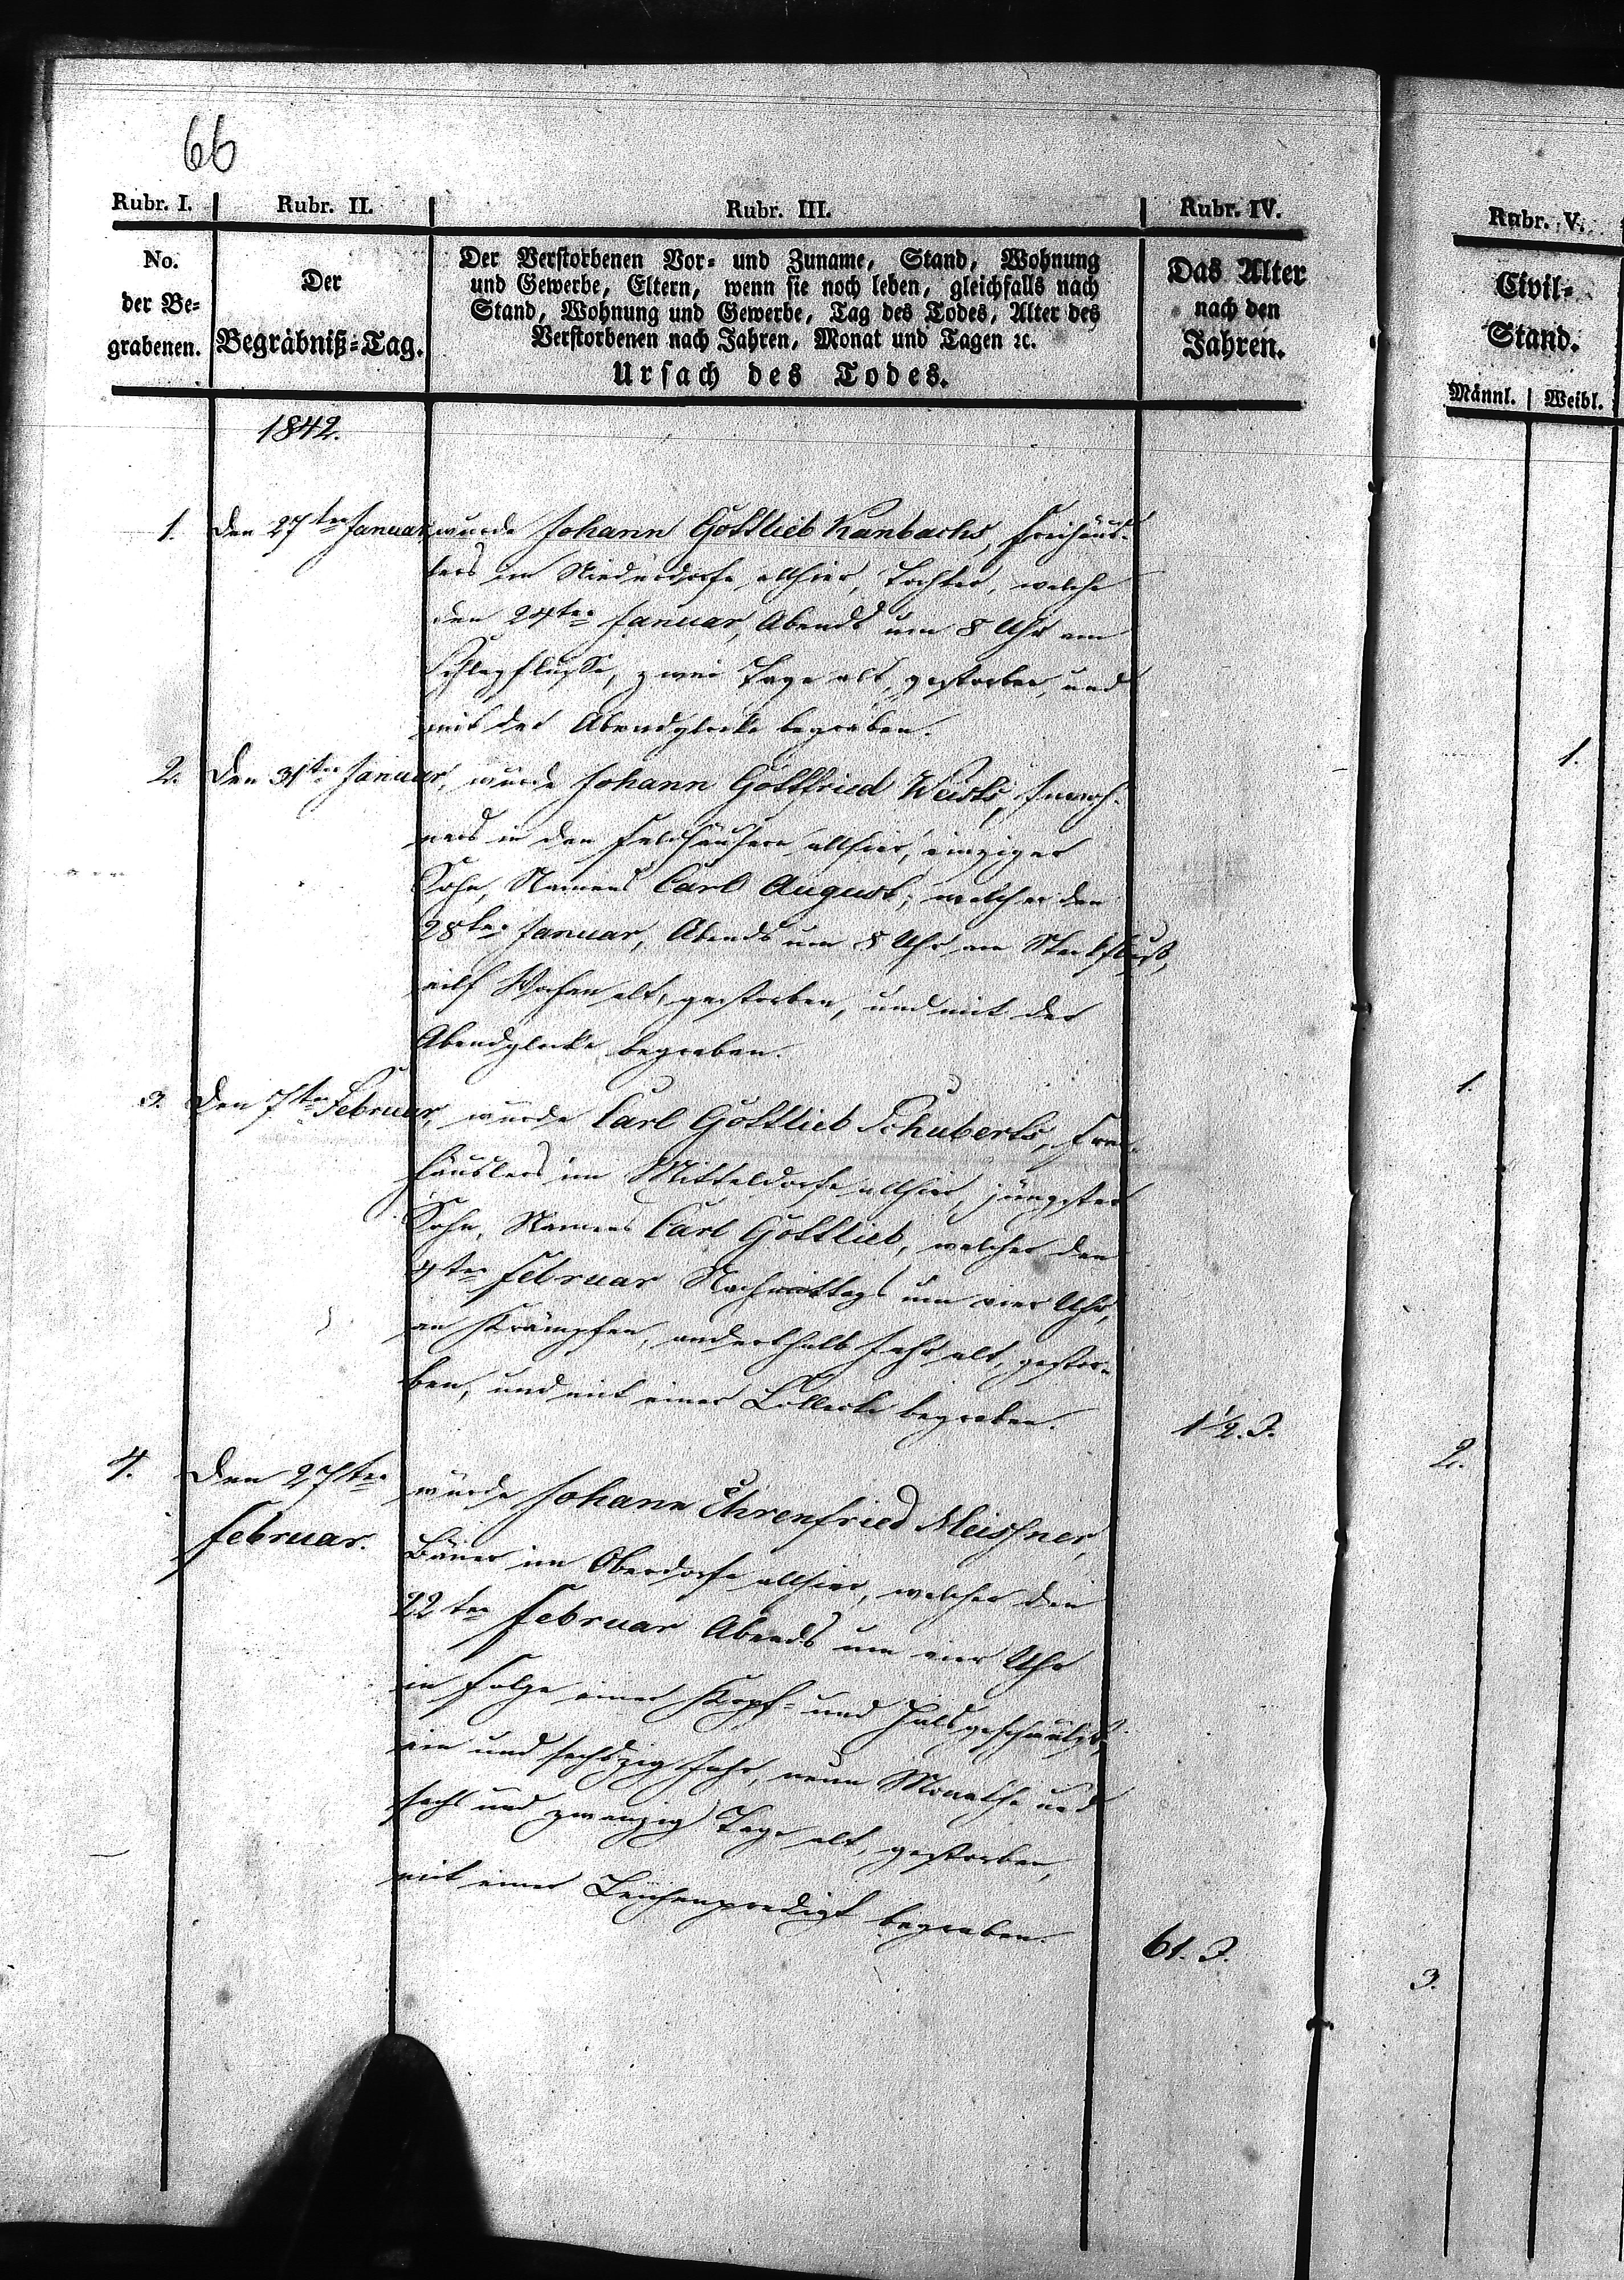 66
Rubr. I. Rubr. II. Rubr. III. Rubr. IV. Rubr. V.
No.
der Be-
grabenen.
Der
Begräbniß-Tag.
Der Verstorbenen Vor- und Zuname, Stand, Wohnung
und Gewerbe, Eltern, wenn sie noch leben, gleichfalls nach
Stand, Wohnung und Gewerbe, Tag des Todes, Alter des
Verstorbenen nach Jahren, Monat und Tagen ꝛc.
Ursach des Todes.
Das Alter
nach den
Jahren.
Civil-
Stand.
Männl. Weibl.
1842.
1. Den 27ten Januar, wurde Johann Gottlieb Kanbachs, Freihäus-
lers im Niederdorfe allhier, Tochter, welche
den 24ten Januar, Abends um 8 Uhr am
Schlagflusse, zwei Tage alt, gestorben, und
mit der Abendglocke begraben.
1.
2. Den 31ten Januar, wurde Johann Gottfried Weists, Inwoh-
ners in den Feldhäusern allhier, einziger
Sohn, Namens Carl August, welcher den
28ten Januar, Abends um 8 Uhr am Steckfluß,
eilf Wochen alt, gestorben, und mit der
Abendglocke begraben.
1.
3. Den 7ten Februar, wurde Carl Gottlieb Schuberts, Frei-
häuslers im Mitteldorfe allhier, jüngster
Sohn, Namens Carl Gottlieb, welcher den
4ten Februar Nachmittags um vier Uhr,
an Krämpfen, anderthalb Jahr alt, gestor-
ben, und mit einer Collecte begraben.
1½. J.
2.
4. Den 27ten
Februar.
wurde Johann Ehrenfried Meissner,
Bauer im Oberdorfe allhier, welcher den
22ten Februar Abends um vier Uhr
in Folge einer Kopf- und Halsgeschwulst,
ein und sechszig Jahr, neun Monathe und
sechs und zwanzig Tage alt, gestorben,
mit einer Leichenpredigt begraben.
61. J.
3.